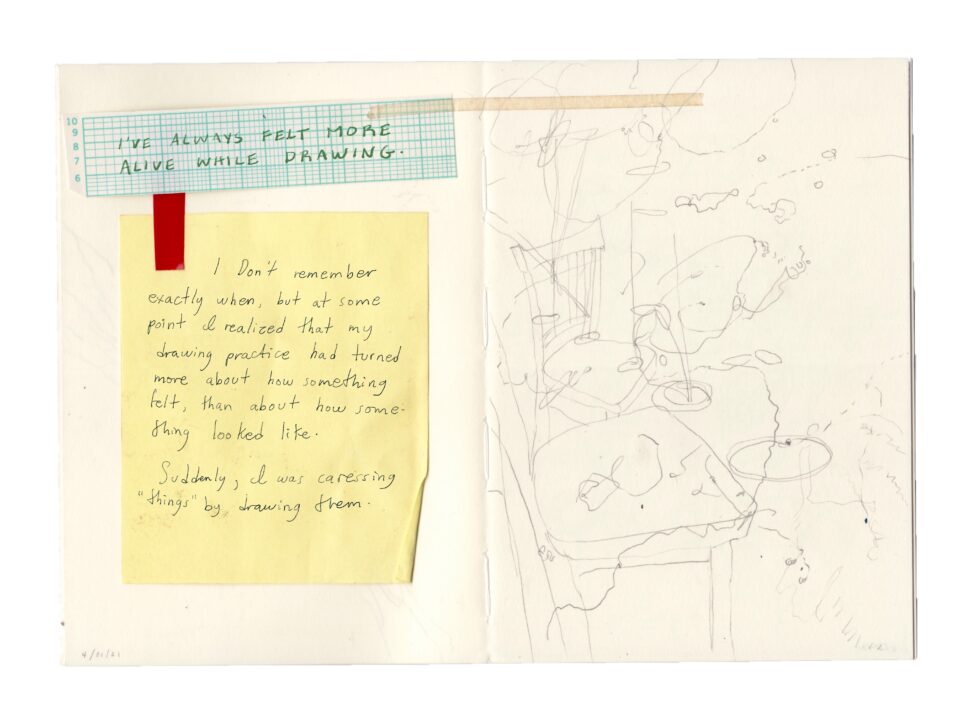 10
9
8
7
6
I'VE ALWAYS FELT MORE
ALIVE WHILE DRAWING.
I Don't remember
exactly when, but at some
point I realized that my
drawing practice had turned
more about how something
felt, than about how some-
thing looked like.
Suddenly, I was caressing
"things" by drawing them.